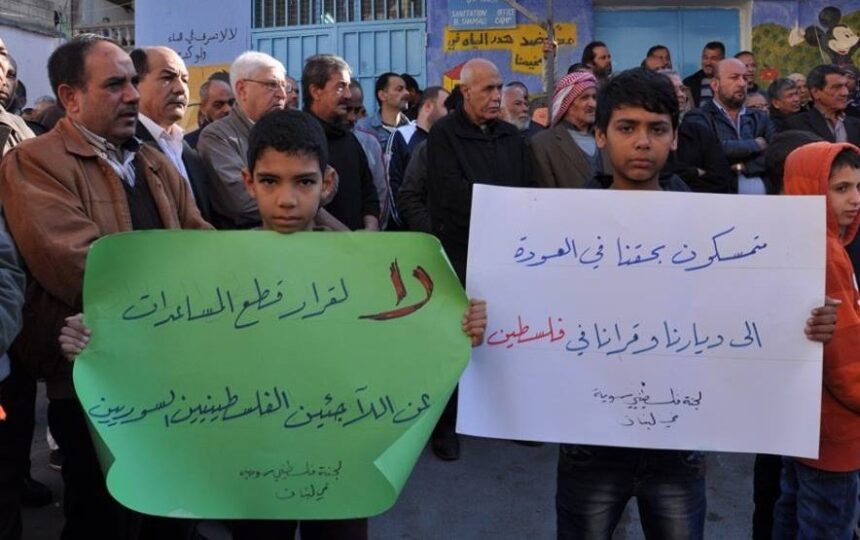 SANITATION OFFICE
B. SHAMALI CAMP
ضد هدر الماء في
مخيمنا
لا لقرار قطع المساعدات
عن اللاجئين الفلسطينيين السوريين
لجنة فلسطينيي سورية
في لبنان
متمسكون بحقنا في العودة
الى ديارنا وقرانا في فلسطين
لجنة فلسطينيي سورية
في لبنان